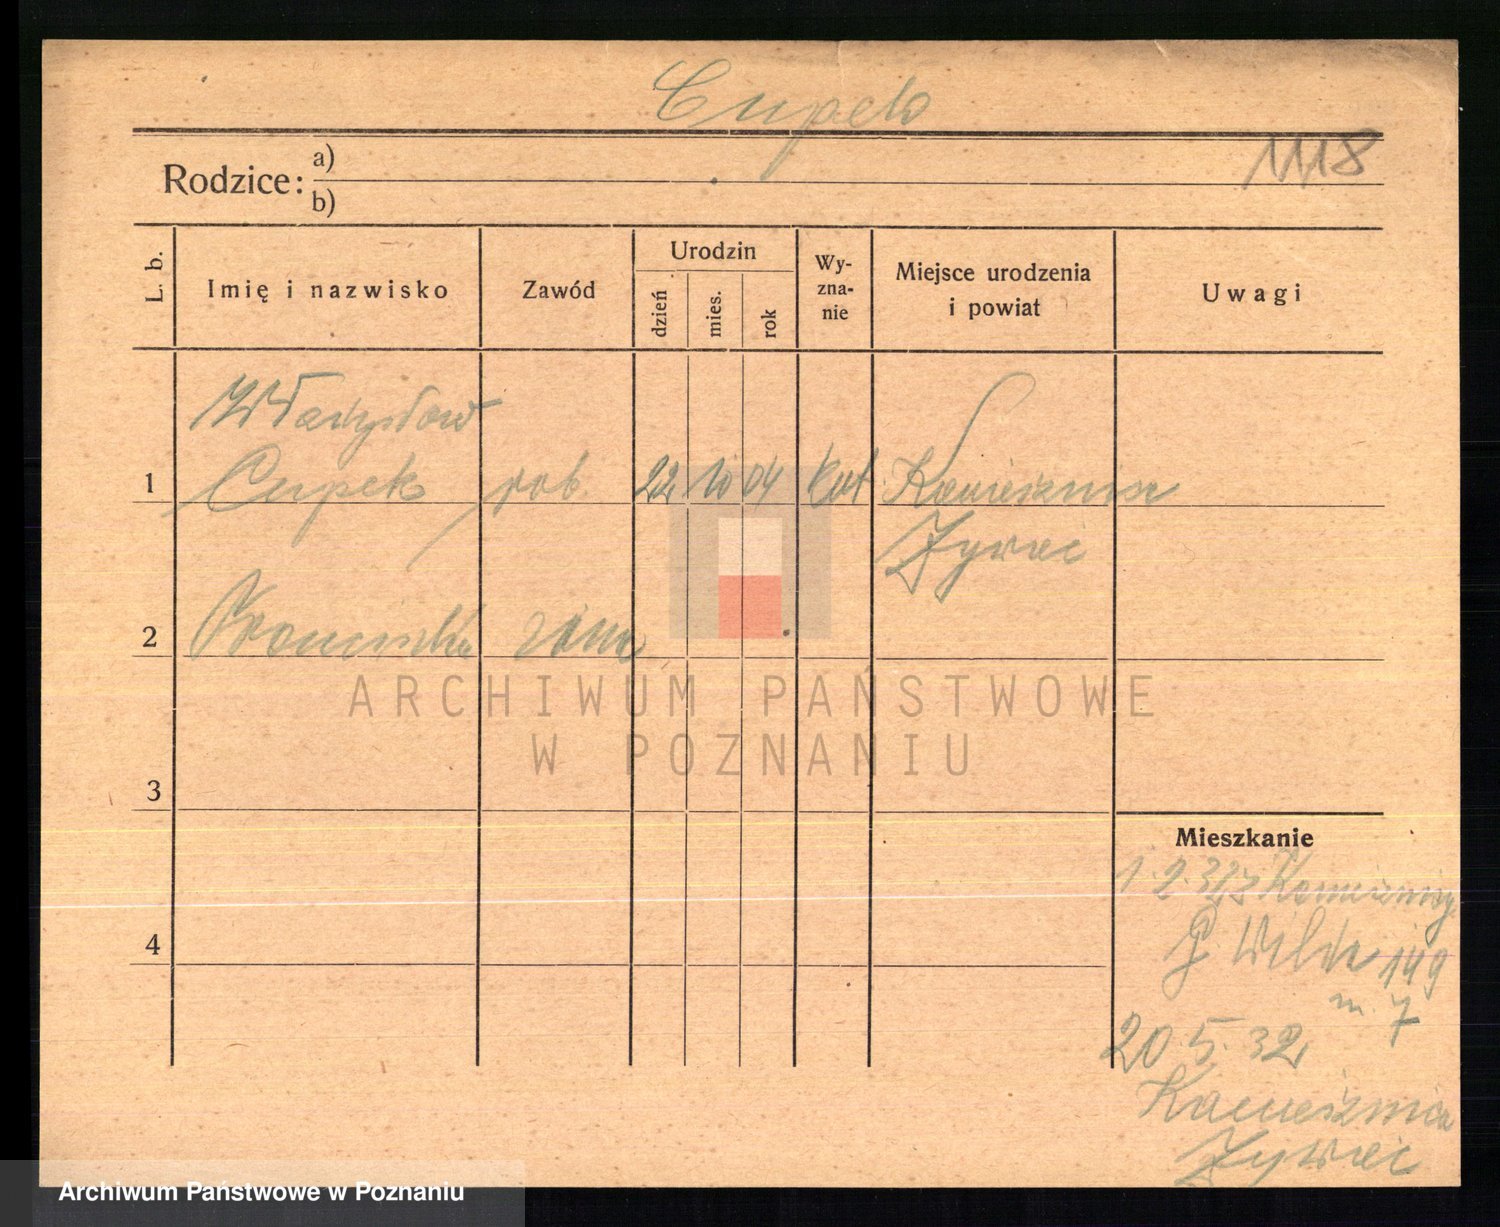 Cupek
1118
Rodzice:
a)
b)
L. b.
Imię i nazwisko
Zawód
Urodzin
dzień
mies.
rok
Wy-
zna-
nie
Miejsce urodzenia
i powiat
Uwagi
Władysław
1 Cupek rob. 22 10 04 kat Kamesznica
Żywiec
2 Franciszka żona
ARCHIWUM PAŃSTWOWE
W POZNANIU
3
Mieszkanie
1.2.32 z Kamesznicy
4
G. Wilda 149
m. 7
20.5.32
Kamesznica
Żywiec
Archiwum Państwowe w Poznaniu